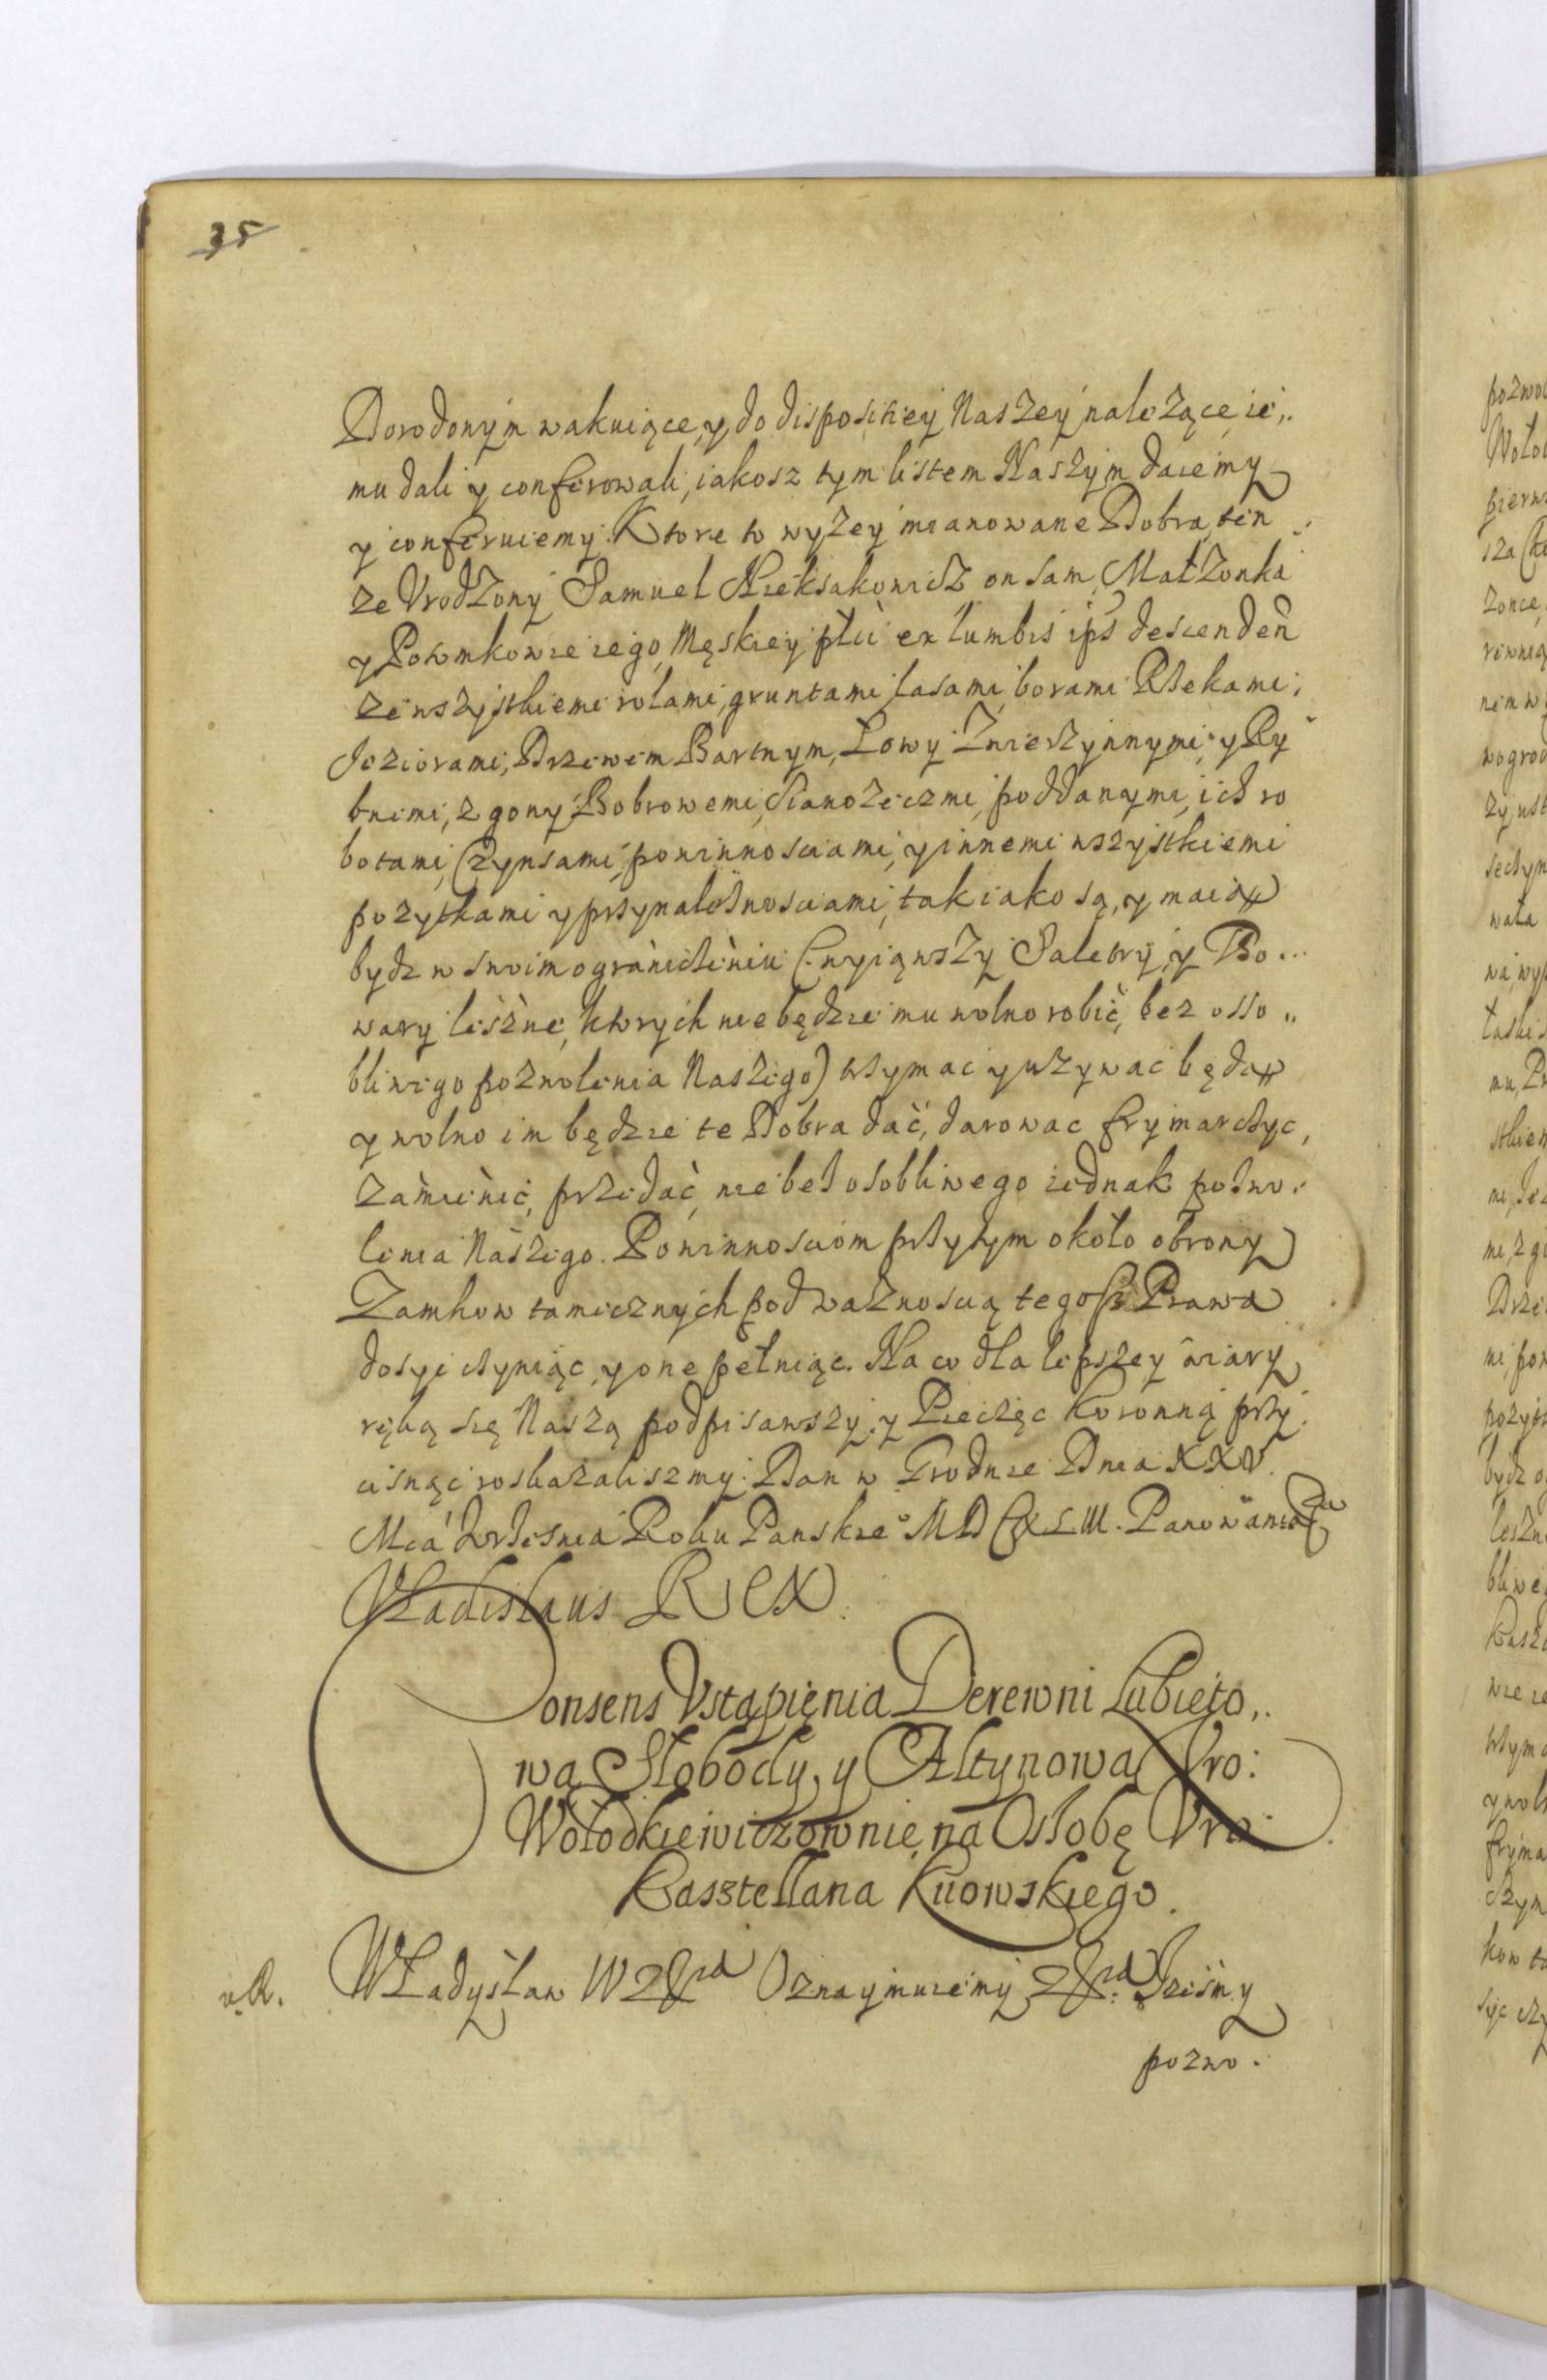 35
Dorodonym wakuiące, y do disposiciey Naszey nalezące ie,,
mu dali y conferowali, iakosz tym listem Naszym daiemy
y conferuiemy. Ktore to wyzey mianowane Dobra, ten
ze Vrodzony Samuel on sam, Małzonka
y Potomkowie iego Męskiey płci ex lumbis ips descenden
ze wszystkiemi rolami, gruntami, lasami, borami Rzekami,
Jeziorami, Drzewem Bartnym, Łowy Zwierzynnymi, y Ry
bnimi, z gony Bobrowemi, Sianozeczmi, poddanymi, ich ro
botami, Czynsami, powinnosciami, y innemi wszystkiemi
pozytkami y przynaleznosciami, tak iako są, y maią
bydz w swoim ograniczeniu (wyiąwszy Saletry, y Bo...
wary leszne, ktorych nie będzie mu wolno robić, bez osso,,
bliwego pozwolenia Naszego) trzymac y uzywac będą
y wolno im będzie te Dobra dać, darowac frymarczyc,
zamienić, przedać, nie bez osobliwego iednak pozwo:
lenia Naszego. Powinnosciom przytym około obrony
Zamkow tamecznych pod waznoscią tegosz Prawa
dosyc czyniąc, y one pełniąc. Na co dla lepszey wiary
ręką się Naszą podpisawszy, y Pieczęc koronną przy
cisnąc roskazalismy. Dan w Grodnie Dnia XXV.
Mca Wrzesnia Roku Panskie
Vladislaus Rex.
Consens Vstąpienia Derewni Lubieto,,
wą Słobody, y Ałtynową Vro:
Wołodkiewiczownie, na Osobę Vro:
Kasztellana Kiiowskiego.
Władysław IV Oznaymuiemy Iześmy
pozwo.